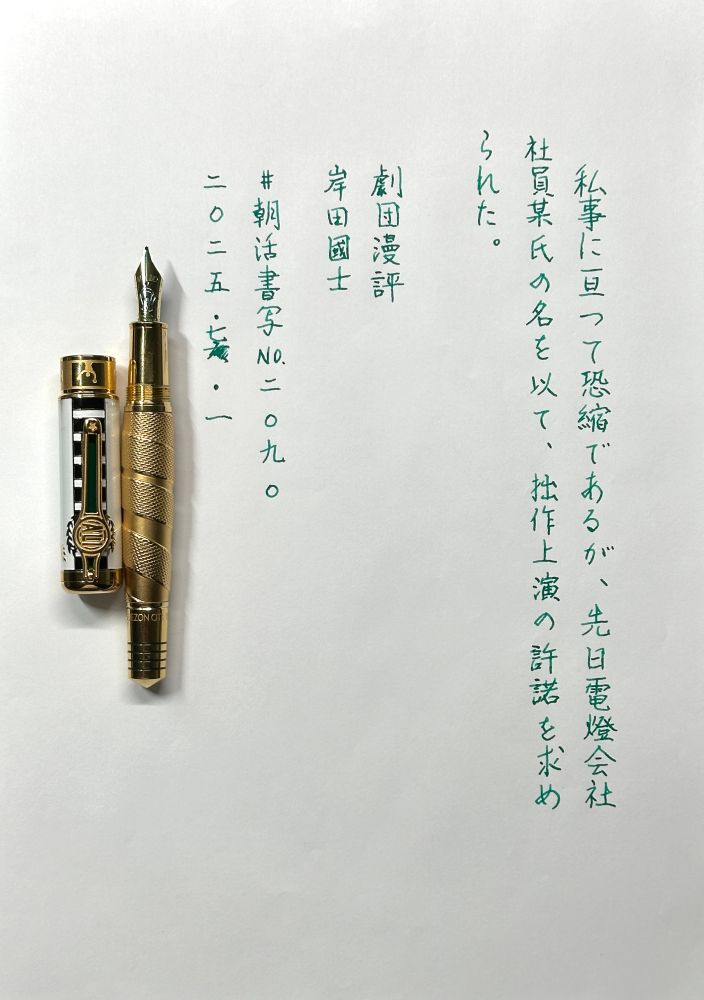 私事に亘つて恐縮であるが、先日電燈会社
社員某氏の名を以て、拙作上演の許諾を求め
られた。
劇団漫評
岸田國士
#朝活書写NO.二〇九〇
二〇二五・七・一
ALI